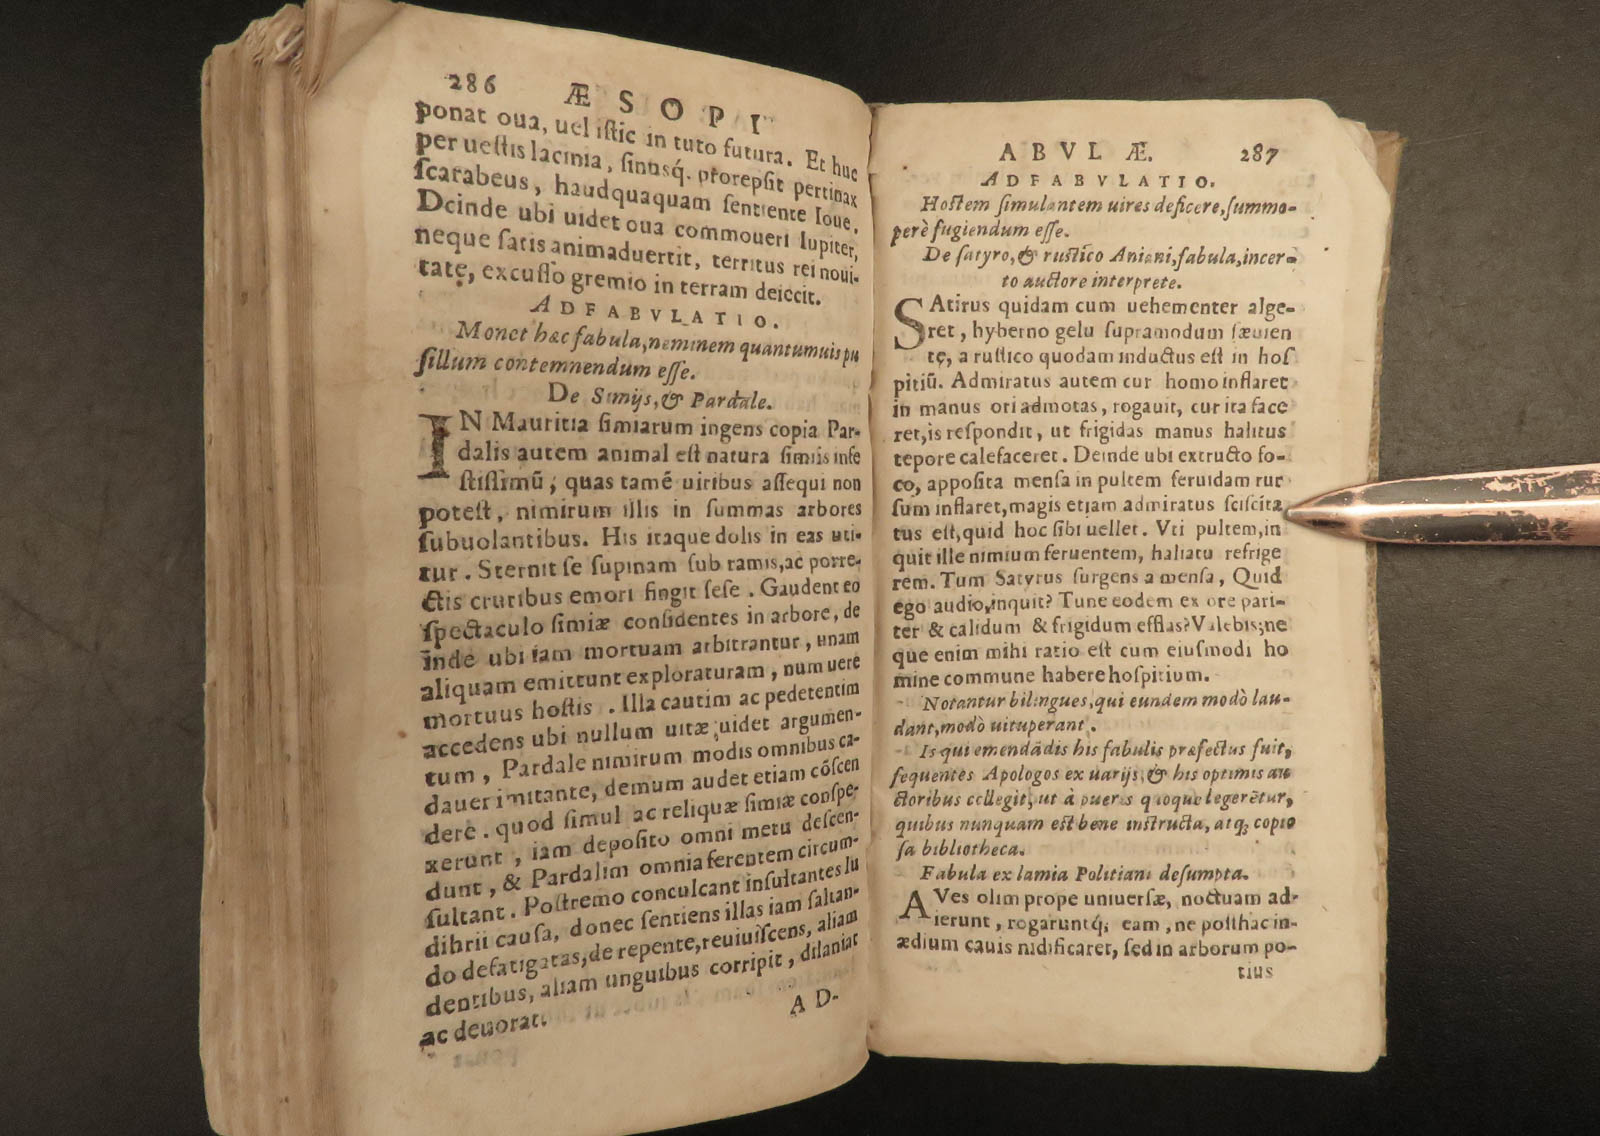 286 ÆSOPI
ponat oua, uel iſtic in tuto futura. Et huc
per ueſtis lacinia, ſinusq́. prorepſit pertinax
ſcarabeus, haudquaquam ſentiente Ioue.
Deinde ubi uidet oua commoueri Iupiter,
neque ſatis animaduertit, territus rei noui-
tatę, excuſſo gremio in terram deiecit.
ADFABVLATIO.
Monet hæc fabula, neminem quantumuis pu
ſillum contemnendum eſſe.
De Simijs, & Pardale.
IN Mauritia ſimiarum ingens copia Par-
dalis autem animal eſt natura ſimiis infe
ſtiſſimū, quas tamē uiribus aſſequi non
poteſt, nimirum illis in ſummas arbores
ſubuolantibus. His itaque dolis in eas uti-
tur. Sternit ſe ſupinam ſub ramis, ac porre-
ctis cruribus emori fingit ſeſe. Gaudent eo
ſpectaculo ſimiæ conſidentes in arbore, de
inde ubi iam mortuam arbitrantur, unam
aliquam emittunt exploraturam, num uere
mortuus hoſtis. Illa cautim ac pedetentim
accedens ubi nullum uitæ uidet argumen-
tum, Pardale nimirum modis omnibus ca-
dauer imitante, demum audet etiam cōſcen
dere. quod ſimul ac reliquæ ſimiæ conſpe-
xerunt, iam depoſito omni metu deſcen-
dunt, & Pardalim omnia ferentem circum-
ſultant. Poſtremo conculcant inſultantes lu
dibrii cauſa, donec ſentiens illas iam ſaltan-
do defatigatas, de repente, reuiuiſcens, aliam
dentibus, aliam unguibus corripit, dilaniat
ac deuorat.
AD-
ABVLÆ. 287
ADFABVLATIO.
Hoſtem ſimulantem uires deficere, ſummo-
perè fugiendum eſſe.
De ſatyro, & ruſtico Aniani, fabula, incer-
to auctore interprete.
SAtirus quidam cum uehementer alge-
ret, hyberno gelu ſupramodum ſæuien
tę, a ruſtico quodam inductus eſt in hoſ
pitiū. Admiratus autem cur homo inflaret
in manus ori admotas, rogauit, cur ita face
ret, is reſpondit, ut frigidas manus halitus
tepore calefaceret. Deinde ubi extructo fo-
co, appoſita menſa in pultem feruidam rur
ſum inflaret, magis etiam admiratus ſciſcita
tus eſt, quid hoc ſibi uellet. Vti pultem, in
quit ille nimium feruentem, haliatu refrige
rem. Tum Satyrus ſurgens a menſa, Quid
ego audio, inquit? Tune eodem ex ore pari-
ter & calidum & frigidum efflas? Valebis; ne
que enim mihi ratio eſt cum eiuſmodi ho
mine commune habere hoſpitium.
Notantur bilingues, qui eundem modò lau-
dant, modò uituperant.
Is qui emendādis his fabulis præfectus fuit,
ſequentes Apologos ex uarijs, & his optimis au
ctoribus collegit, ut à pueris quoque legerētur,
quibus nunquam eſt bene inſtructa, atq; copio
ſa bibliotheca.
Fabula ex lamia Politiani deſumpta.
AVes olim prope uniuerſæ, noctuam ad-
ierunt, rogaruntq́; eam, ne poſthac in
ædium cauis nidificaret, ſed in arborum po-
tius